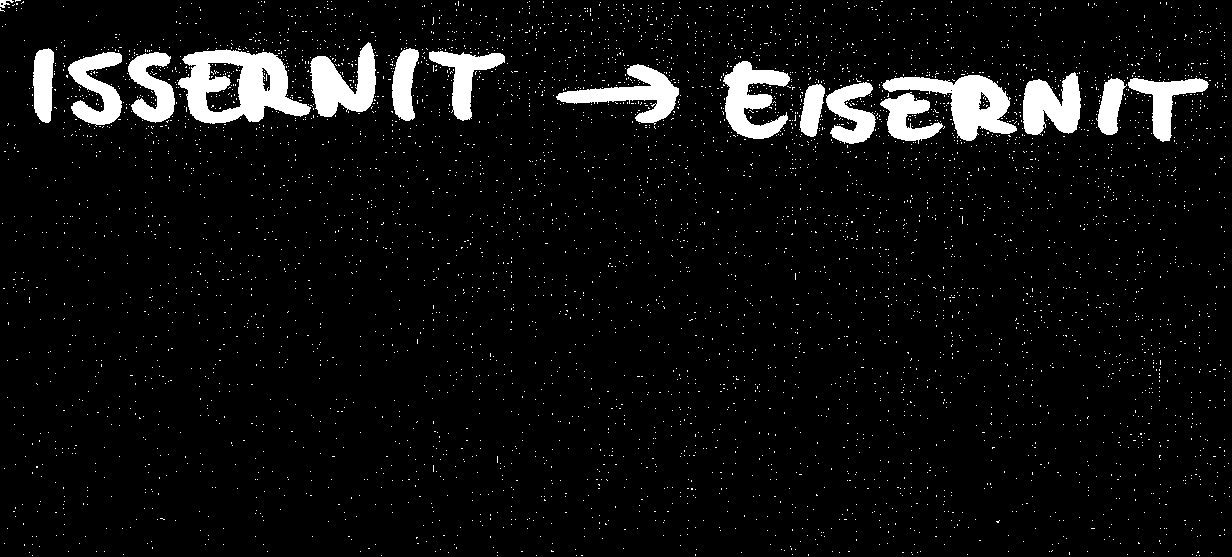 ISSERNIT → EISERNIT